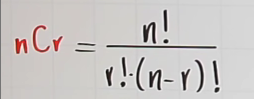 nCr = n! / r!·(n-r)!